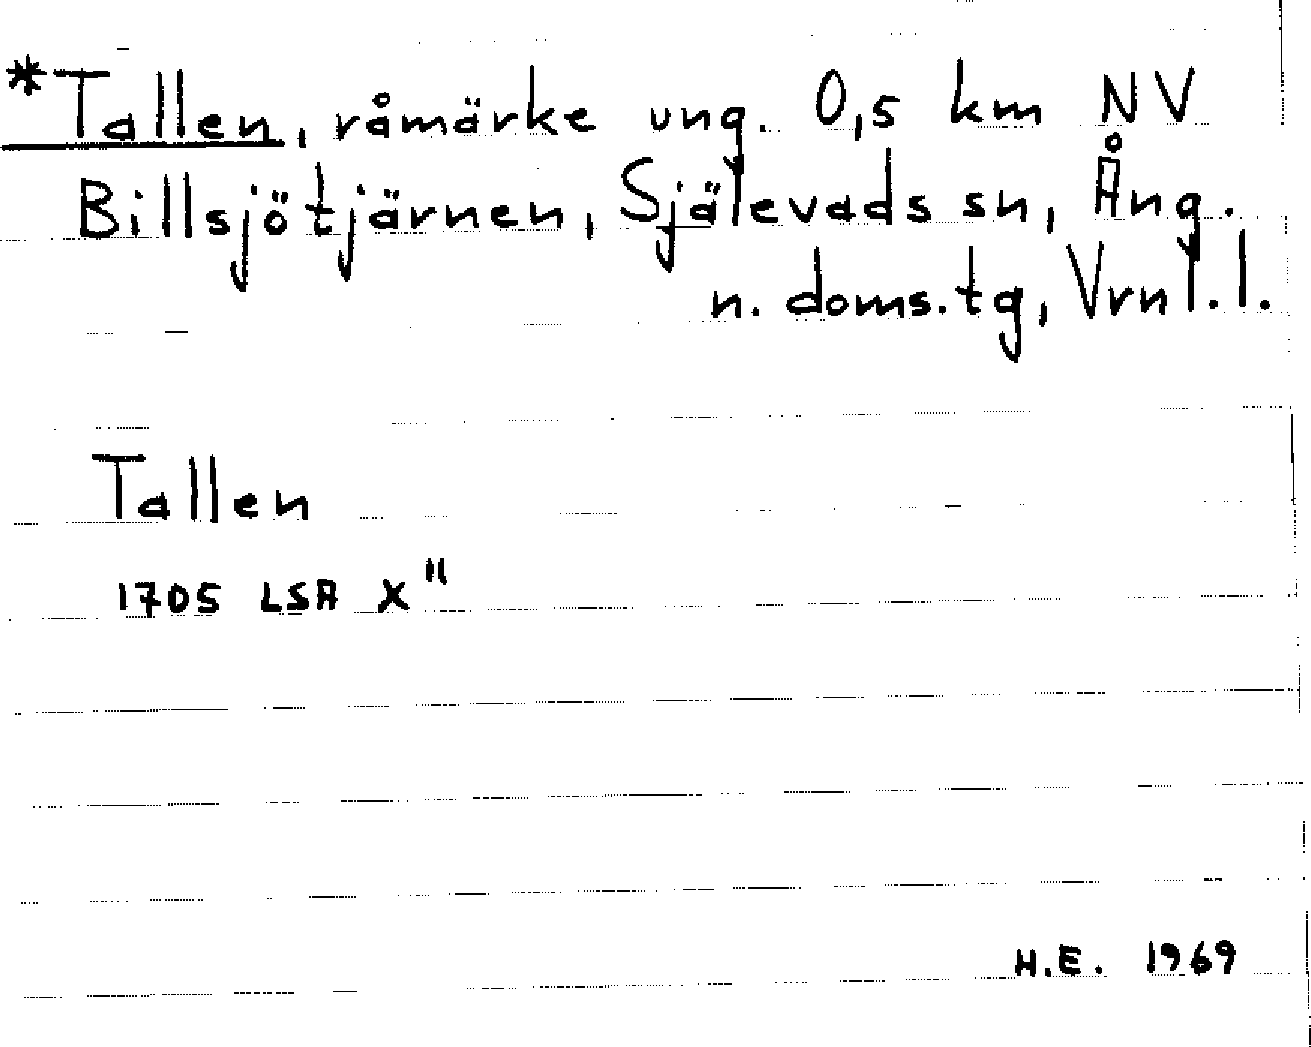 *Tallen, råmärke ung. 0,5 km NV
Billsjötjärnen, Själevads sn, Ång.
n. doms.tg, Vrnl.l.
Tallen
1705 LSA X"
H.E. 1969